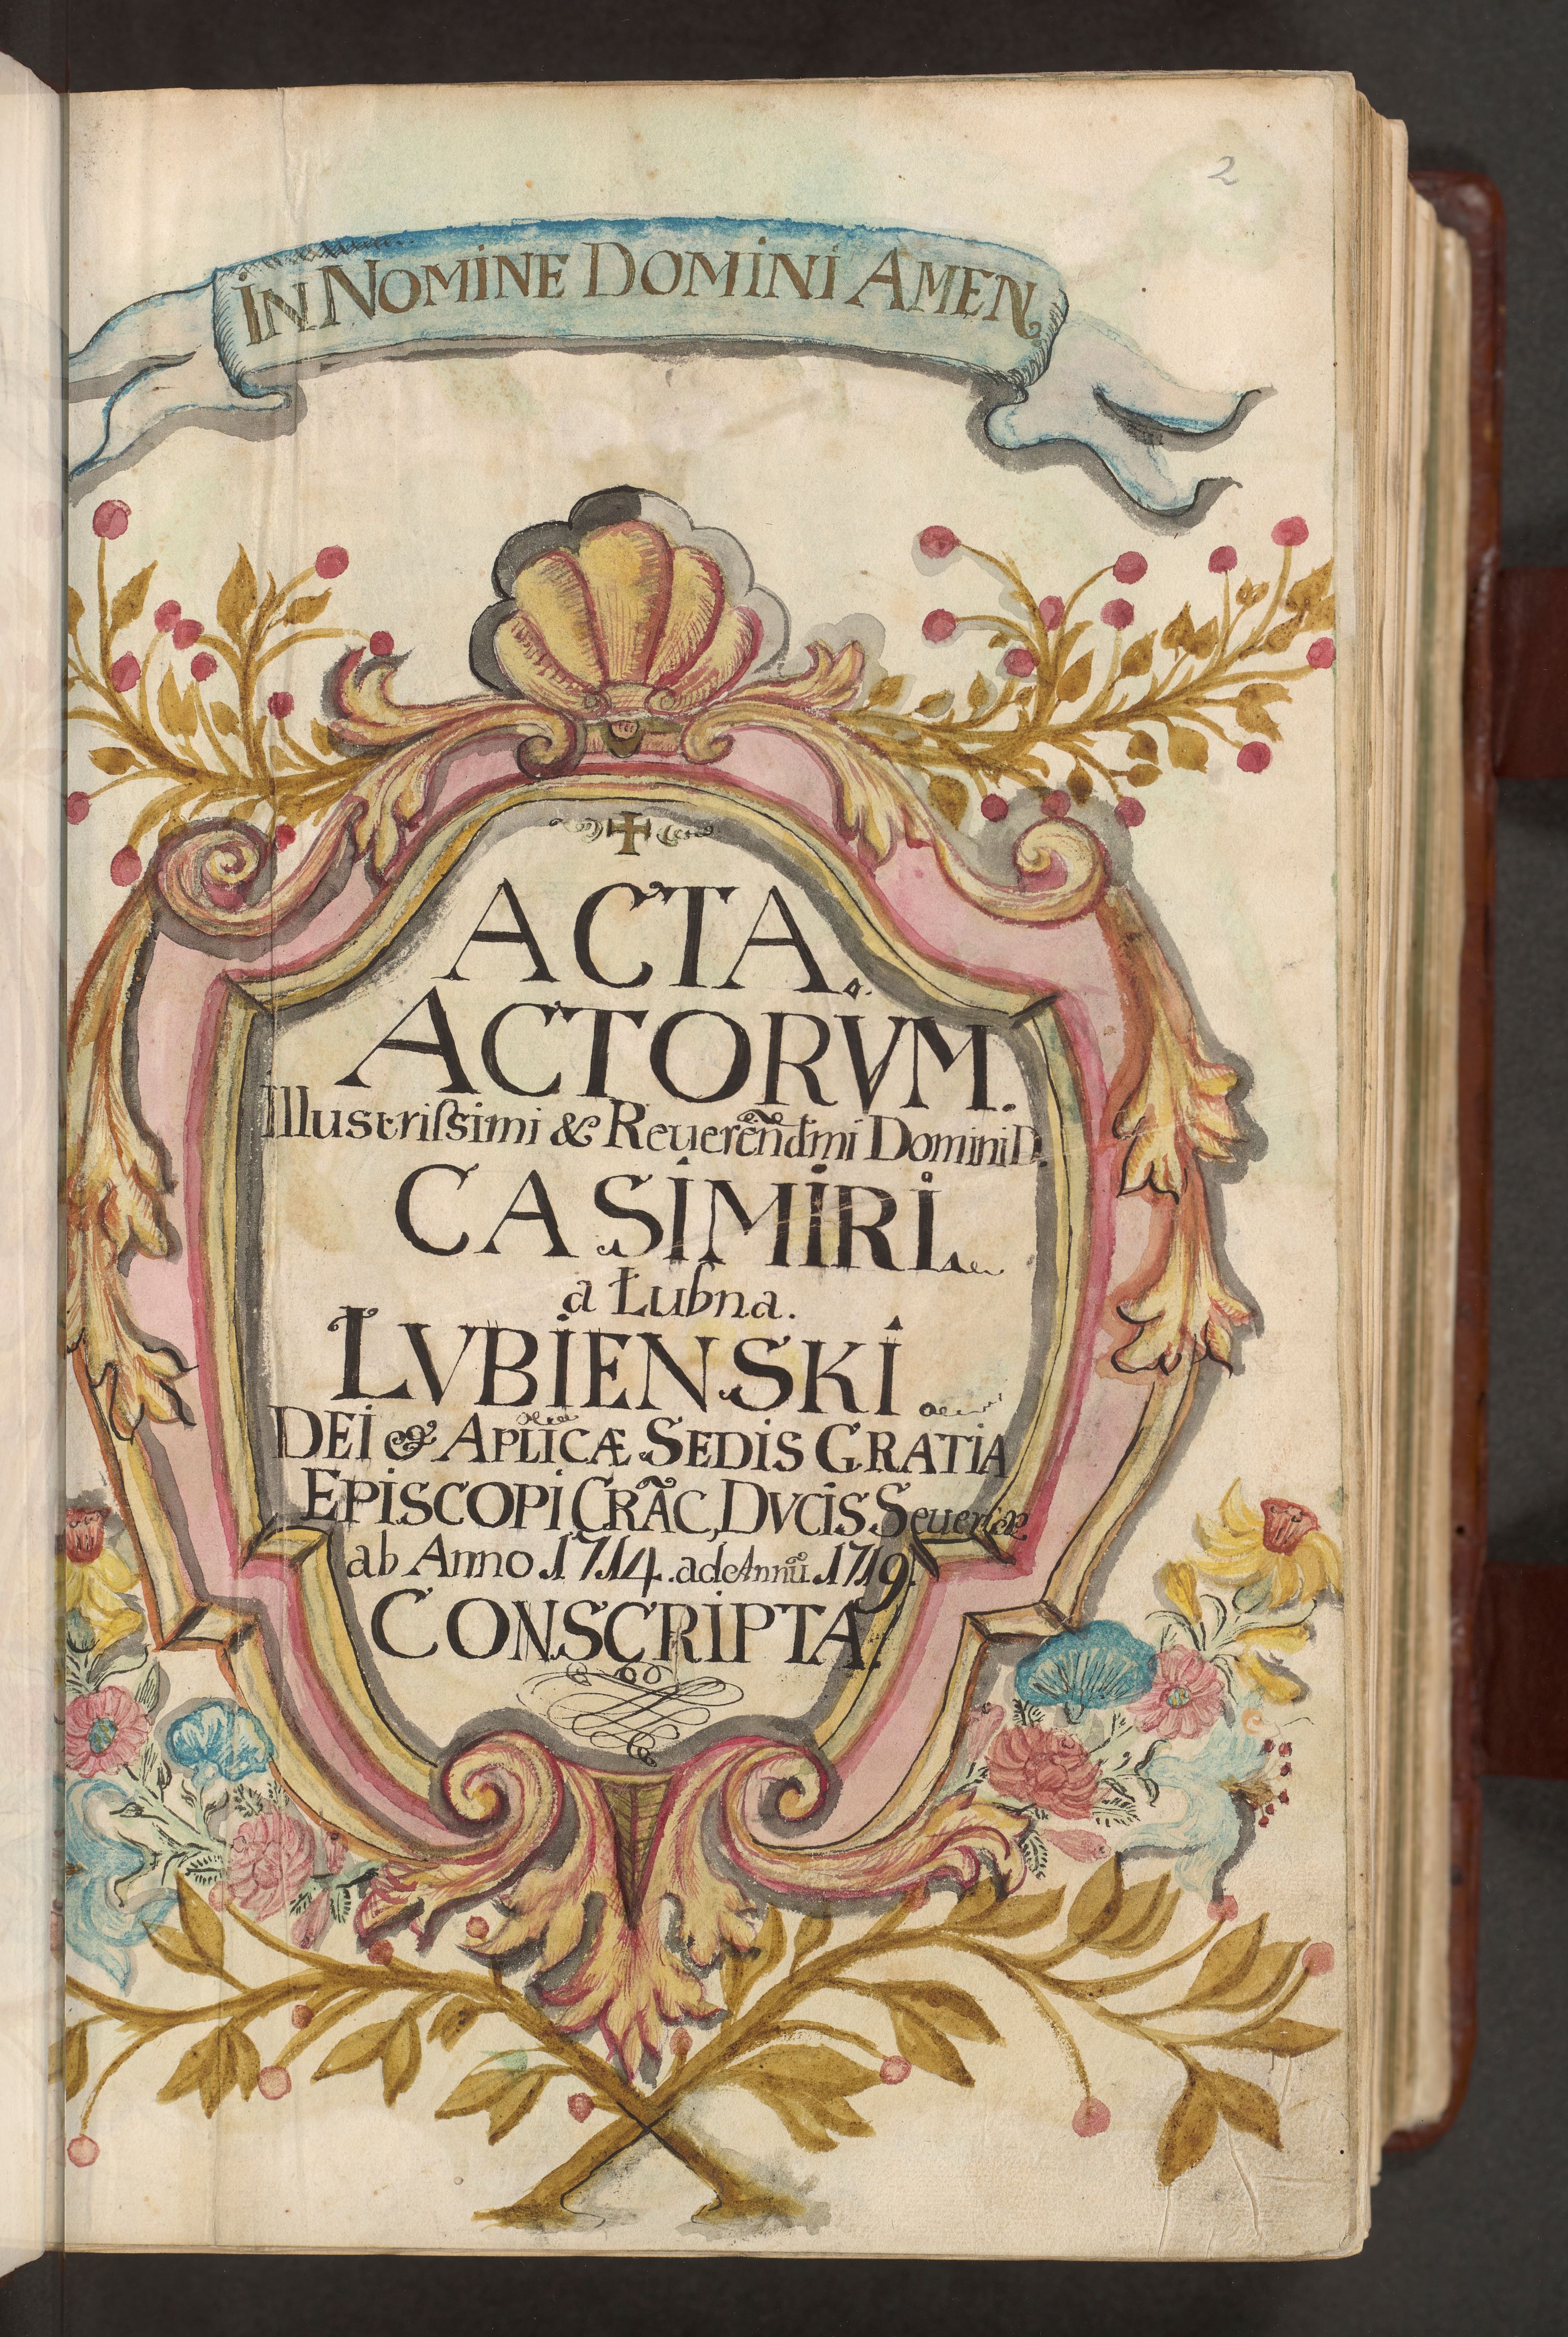 2
IN NOMINE DOMINI AMEN
ACTA.
ACTORVM.
Illustriſsimi & Reuerēndmi Domini D.
CASIMIRI
a Łubna.
LVBIENSKI
DEI & APLICÆ SEDIS GRATIA
EPISCOPI CRÃC, DVCIS Seueriæ
ab Anno 1714. ad Annũ 1719.
CONSCRIPTA.